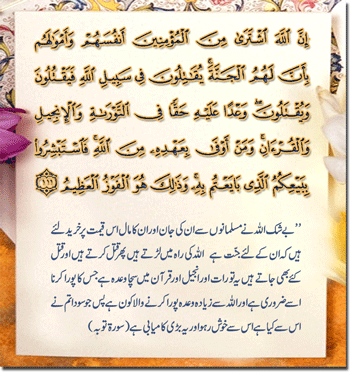 إِنَّ اللَّهَ اشْتَرَىٰ مِنَ الْمُؤْمِنِينَ أَنفُسَهُمْ وَأَمْوَالَهُم
بِأَنَّ لَهُمُ الْجَنَّةَ ۚ يُقَاتِلُونَ فِي سَبِيلِ اللَّهِ فَيَقْتُلُونَ
وَيُقْتَلُونَ ۖ وَعْدًا عَلَيْهِ حَقًّا فِي التَّوْرَاةِ وَالْإِنجِيلِ
وَالْقُرْآنِ ۚ وَمَنْ أَوْفَىٰ بِعَهْدِهِ مِنَ اللَّهِ ۚ فَاسْتَبْشِرُوا
بِبَيْعِكُمُ الَّذِي بَايَعْتُم بِهِ ۚ وَذَٰلِكَ هُوَ الْفَوْزُ الْعَظِيمُ ﴿١١١﴾
”بے شک اللہ نے مسلمانوں سے ان کی جان اور ان کا مال اس قیمت پر خرید لئے
ہیں کہ ان کے لئے جنت ہے اللہ کی راہ میں لڑتے ہیں پھر قتل کرتے ہیں اور قتل
کئے بھی جاتے ہیں یہ تورات اور انجیل اور قرآن میں سچا وعدہ ہے جس کا پورا کرنا
اسے ضروری ہے اور اللہ سے زیادہ وعدہ پورا کرنے والا کون ہے پس جو سودا تم نے
اس سے کیا ہے اس سے خوش رہو اور یہ بڑی کامیابی ہے (سورۃ توبہ)